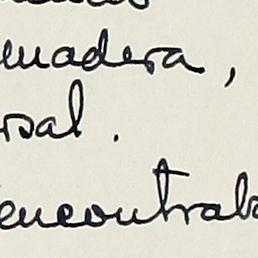 madera,
rsal.
encontraba